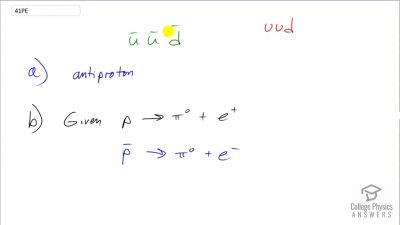 41PE
ū ū d̄
uud
a) antiproton
b) Given p → π⁰ + e⁺
p̄ → π⁰ + e⁻
College Physics
ANSWERS